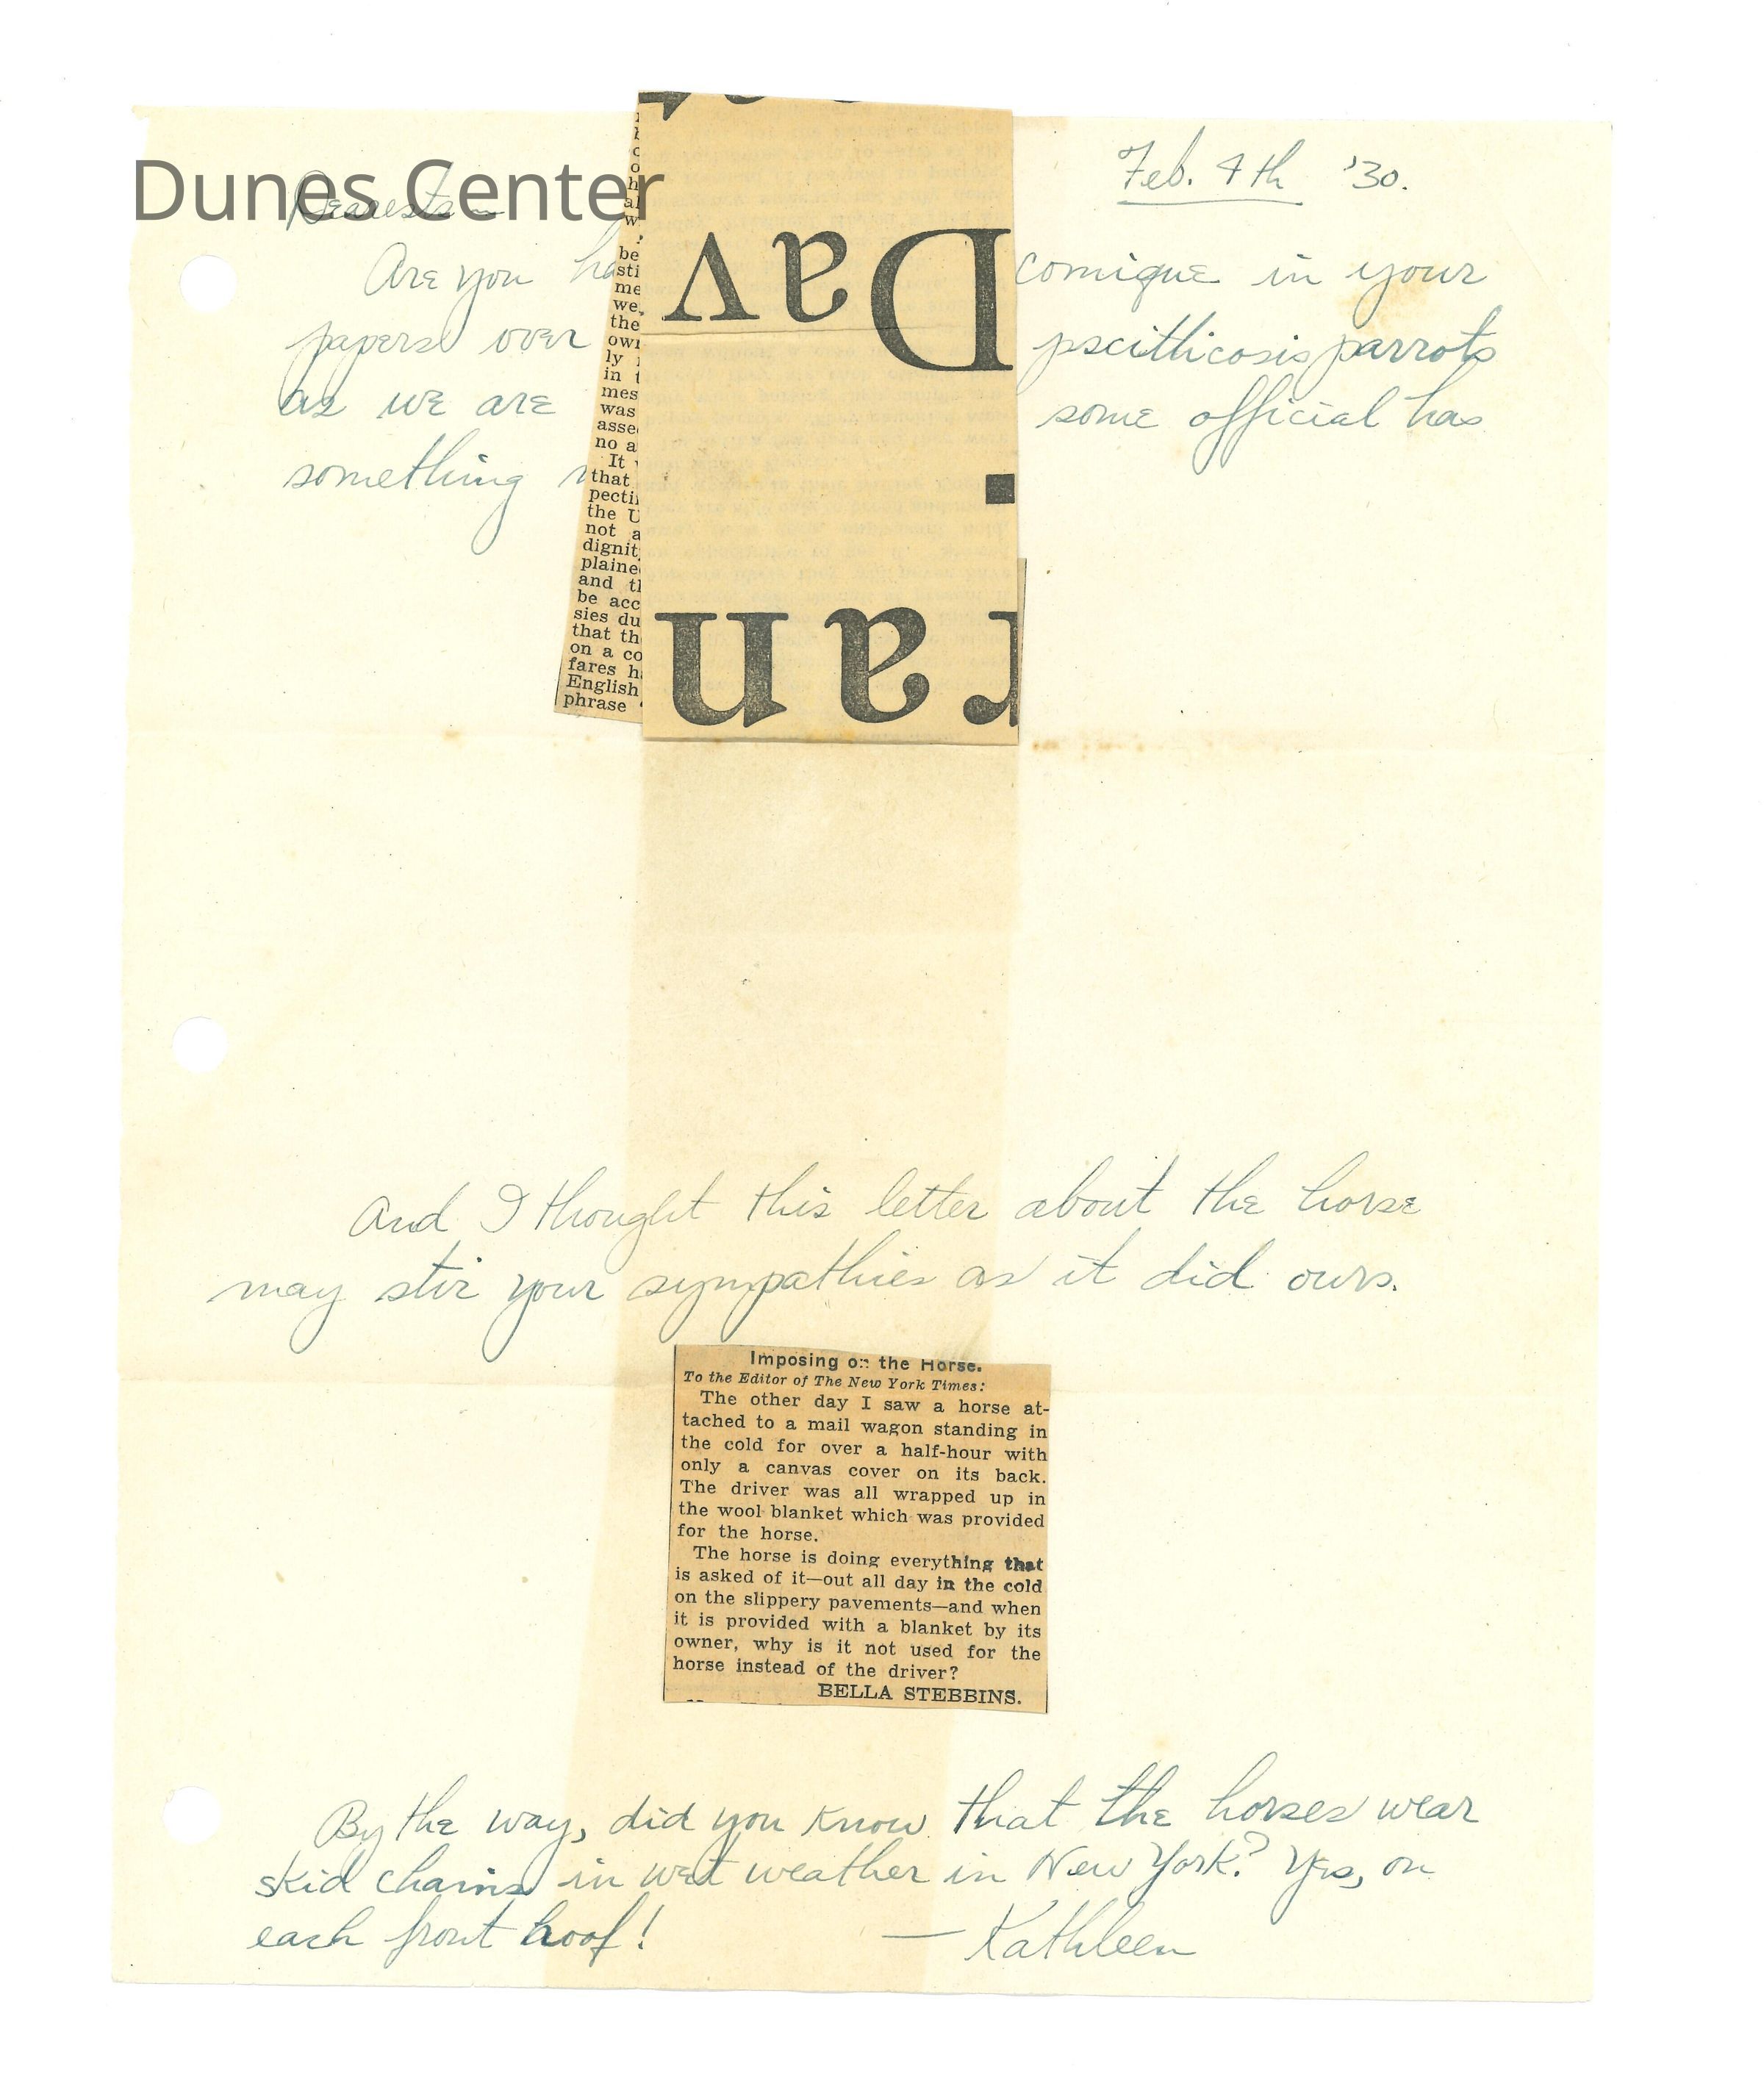 Dunes Center
Feb. 4th '30.
Dearests—
Are you ha comique in your
papers over pscitticosis parrots
as we are some official has
something
w
be
sti
me
we,
the
own
ly
in t
mes
was
asse
no a
It
that
pecti
the U
not a
dignit
plaine
and th
be acc
sies du
that th
on a co
fares h
English
phrase
Day
ran
And I thought this letter about the horse
may stir your sympathies as it did ours.
Imposing on the Horse.
To the Editor of The New York Times:
The other day I saw a horse at-
tached to a mail wagon standing in
the cold for over a half-hour with
only a canvas cover on its back.
The driver was all wrapped up in
the wool blanket which was provided
for the horse.
The horse is doing everything that
is asked of it—out all day in the cold
on the slippery pavements—and when
it is provided with a blanket by its
owner, why is it not used for the
horse instead of the driver?
BELLA STEBBINS.
By the way, did you know that the horses wear
skid chains in wet weather in New York? Yes, on
each front hoof!
— Kathleen